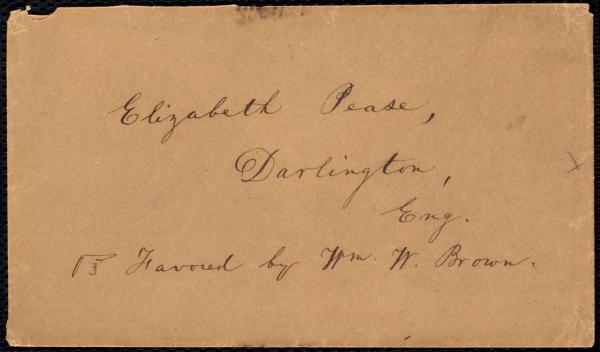 Elizabeth Pease,
Darlington,
Eng.
☞ Favored by Wm. W. Brown.